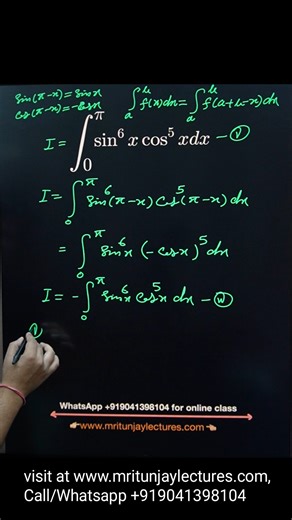 sin(π-x)=sinx
cos(π-x)=-cosx
∫ₐᵇ f(x)dx = ∫ₐᵇ f(a+b-x)dx
I = ∫₀^π sin⁶ x cos⁵ x dx -
I = ∫₀^π sin⁶(π-x) cos⁵(π-x) dx
= ∫₀^π sin⁶x (-cosx)⁵ dx
I = - ∫₀^π sin⁶x cos⁵x dx -
WhatsApp +919041398104 for online class
👉🏻www.mritunjaylectures.com👈🏻
visit at www.mritunjaylectures.com,
Call/Whatsapp +919041398104